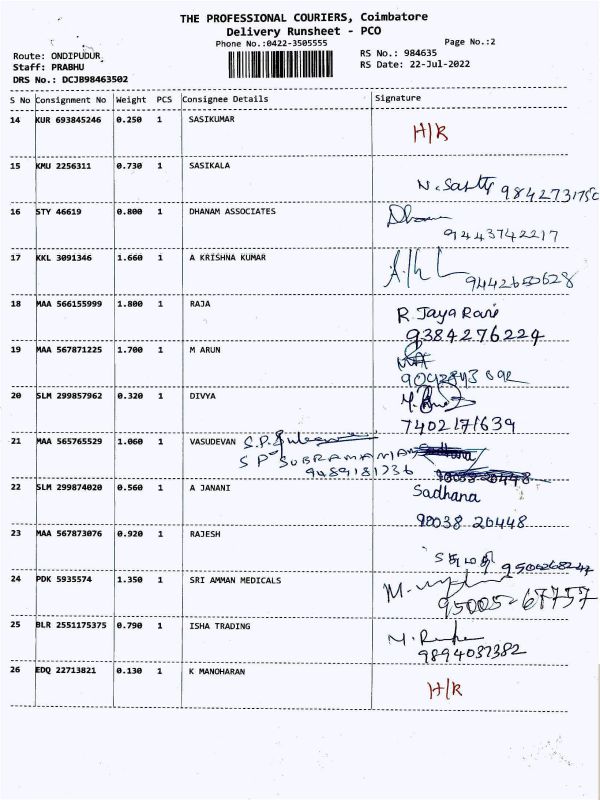 THE PROFESSIONAL COURIERS, Coimbatore
Delivery Runsheet - PCO
Phone No.:0422-3505555 Page No.:2
Route: ONDIPUDUR RS No.: 984635
Staff: PRABHU RS Date: 22-Jul-2022
DRS No.: DCJB98463502
S No Consignment No Weight PCS Consignee Details Signature
14 KUR 693845246 0.250 1 SASIKUMAR H/R
15 KMU 2256311 0.730 1 SASIKALA
16 STY 46619 0.800 1 DHANAM ASSOCIATES
9443742217
17 KKL 3091346 1.660 1 A KRISHNA KUMAR
9442650628
18 MAA 566155999 1.800 1 RAJA R. Jaya Rani
9384276224
19 MAA 567871225 1.700 1 M ARUN
20 SLM 299857962 0.320 1 DIVYA
7402171639
21 MAA 565765529 1.060 1 VASUDEVAN
S P SUBRAMANIAN
9489181236
22 SLM 299874020 0.560 1 A JANANI Sadhana
90038 20448
23 MAA 567873076 0.920 1 RAJESH
24 PDK 5935574 1.350 1 SRI AMMAN MEDICALS
95005-67757
25 BLR 2551175375 0.790 1 ISHA TRADING
9894037382
26 EDQ 22713821 0.130 1 K MANOHARAN H/R